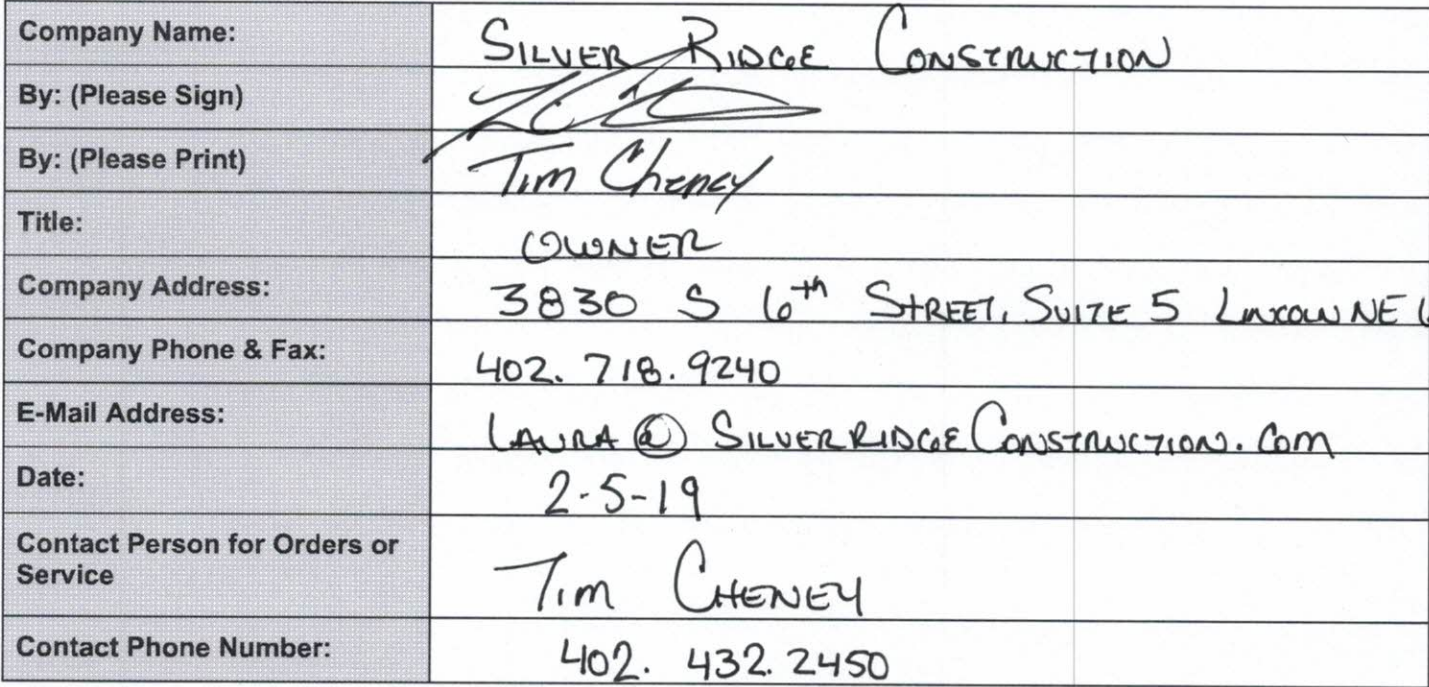 Company Name: SILVER RIDGE CONSTRUCTION
By: (Please Sign)
By: (Please Print) Tim Cheney
Title: OWNER
Company Address: 3830 S 6th STREET, SUITE 5 LINCOLN NE
Company Phone & Fax: 402. 718. 9240
E-Mail Address: LAURA @ SILVERRIDGECONSTRUCTION.COM
Date: 2-5-19
Contact Person for Orders or
Service Tim CHENEY
Contact Phone Number: 402. 432. 2450